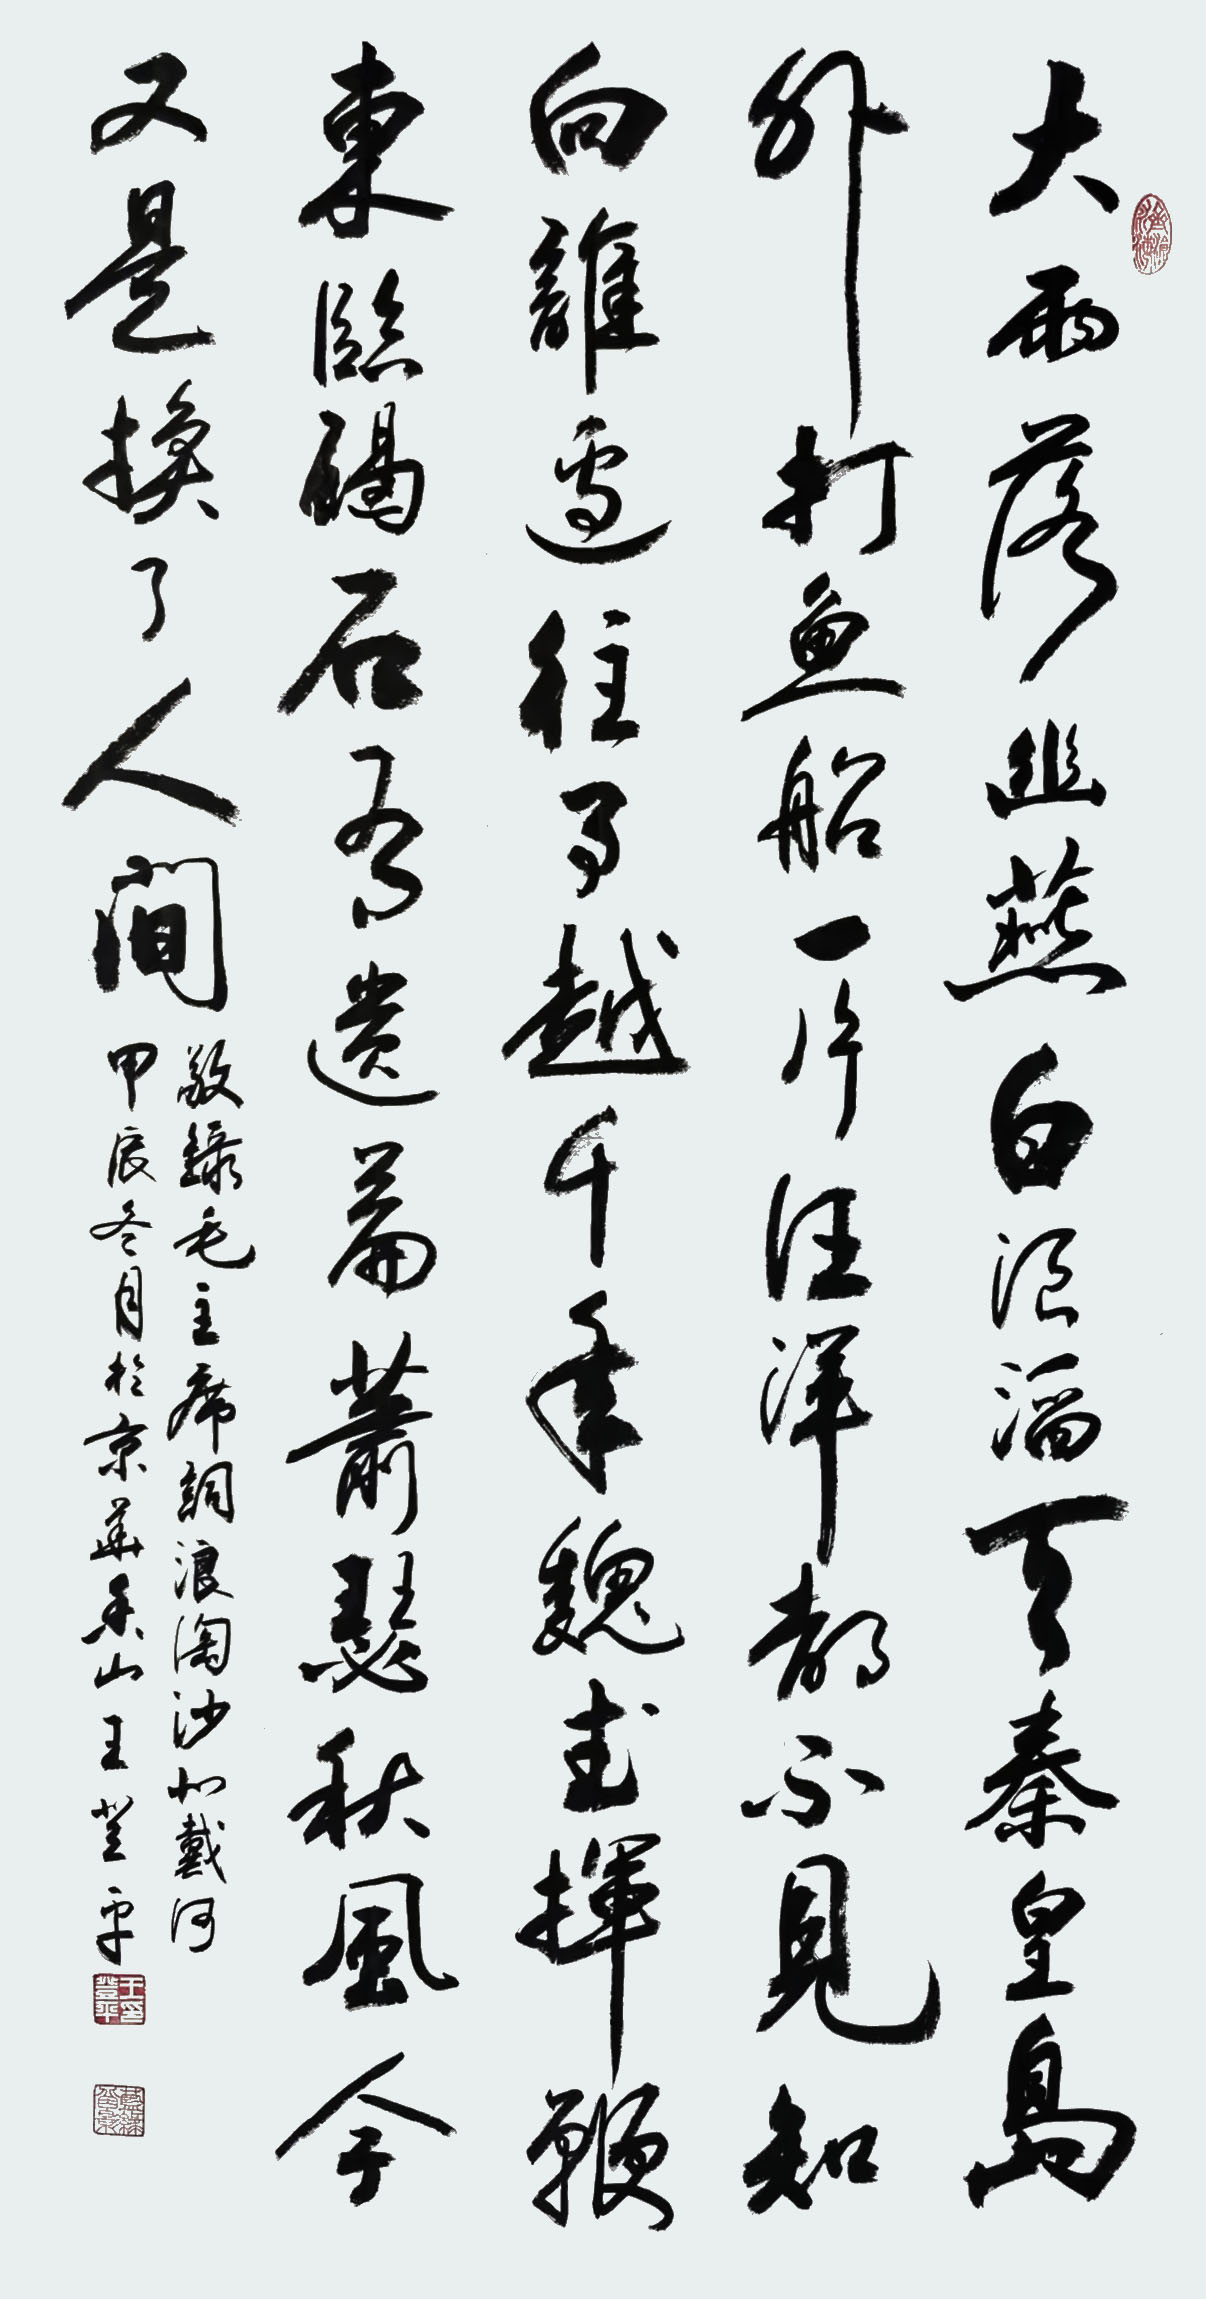 大雨落幽燕白浪滔天秦皇島
外打魚船一片汪洋都不見知
向誰邊往事越千年魏武揮鞭
東臨碣石有遺篇蕭瑟秋風今
又是換了人間
敬錄毛主席詞浪淘沙北戴河
甲辰冬月於京華香山王登平
王登平印